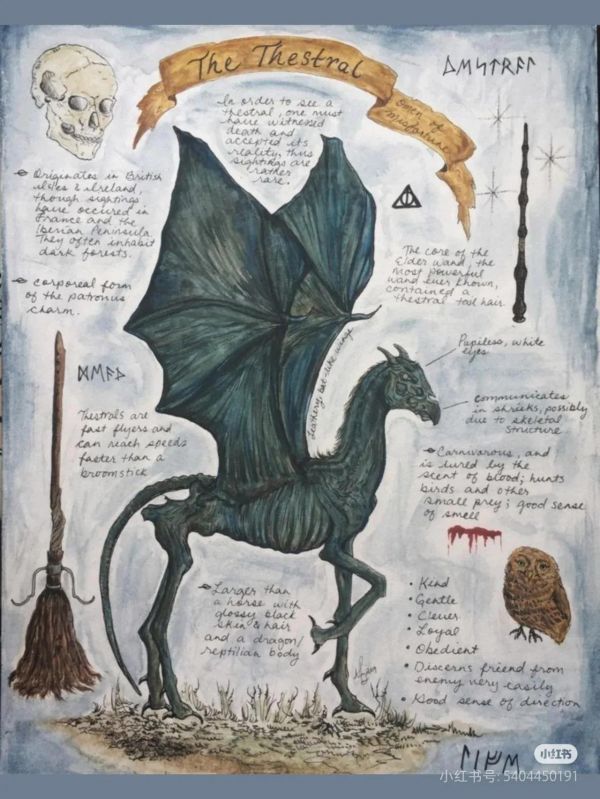 The Thestral
Omen of
Misfortune
In order to see a
thestral, one must
have witnessed
death and
accepted its
reality, thus
sightings are
rather
rare.
Originates in British
isles & Ireland,
though sightings
have occured in
France and the
Iberian Peninsula.
They often inhabit
dark forests.
corporeal form
of the patronus
charm.
The core of the
Elder wand, the
most powerful
wand ever known,
contained a
thestral tail hair.
leathery, bat-like wings
Pupiless, white
eyes
Communicates
in shrieks, possibly
due to skeletal
structure
Thestrals are
fast flyers and
can reach speeds
faster than a
broomstick
Carnivorous, and
is lured by the
scent of blood; hunts
birds and other
small prey; good sense
of smell
Larger than
a horse with
glossy black
skin & hair
and a dragon/
reptilian body
• Kind
• Gentle
• Clever
• Loyal
• Obedient
• Discerns friend from
enemy very easily
• Good sense of direction
小红书
小红书号: 5404450191